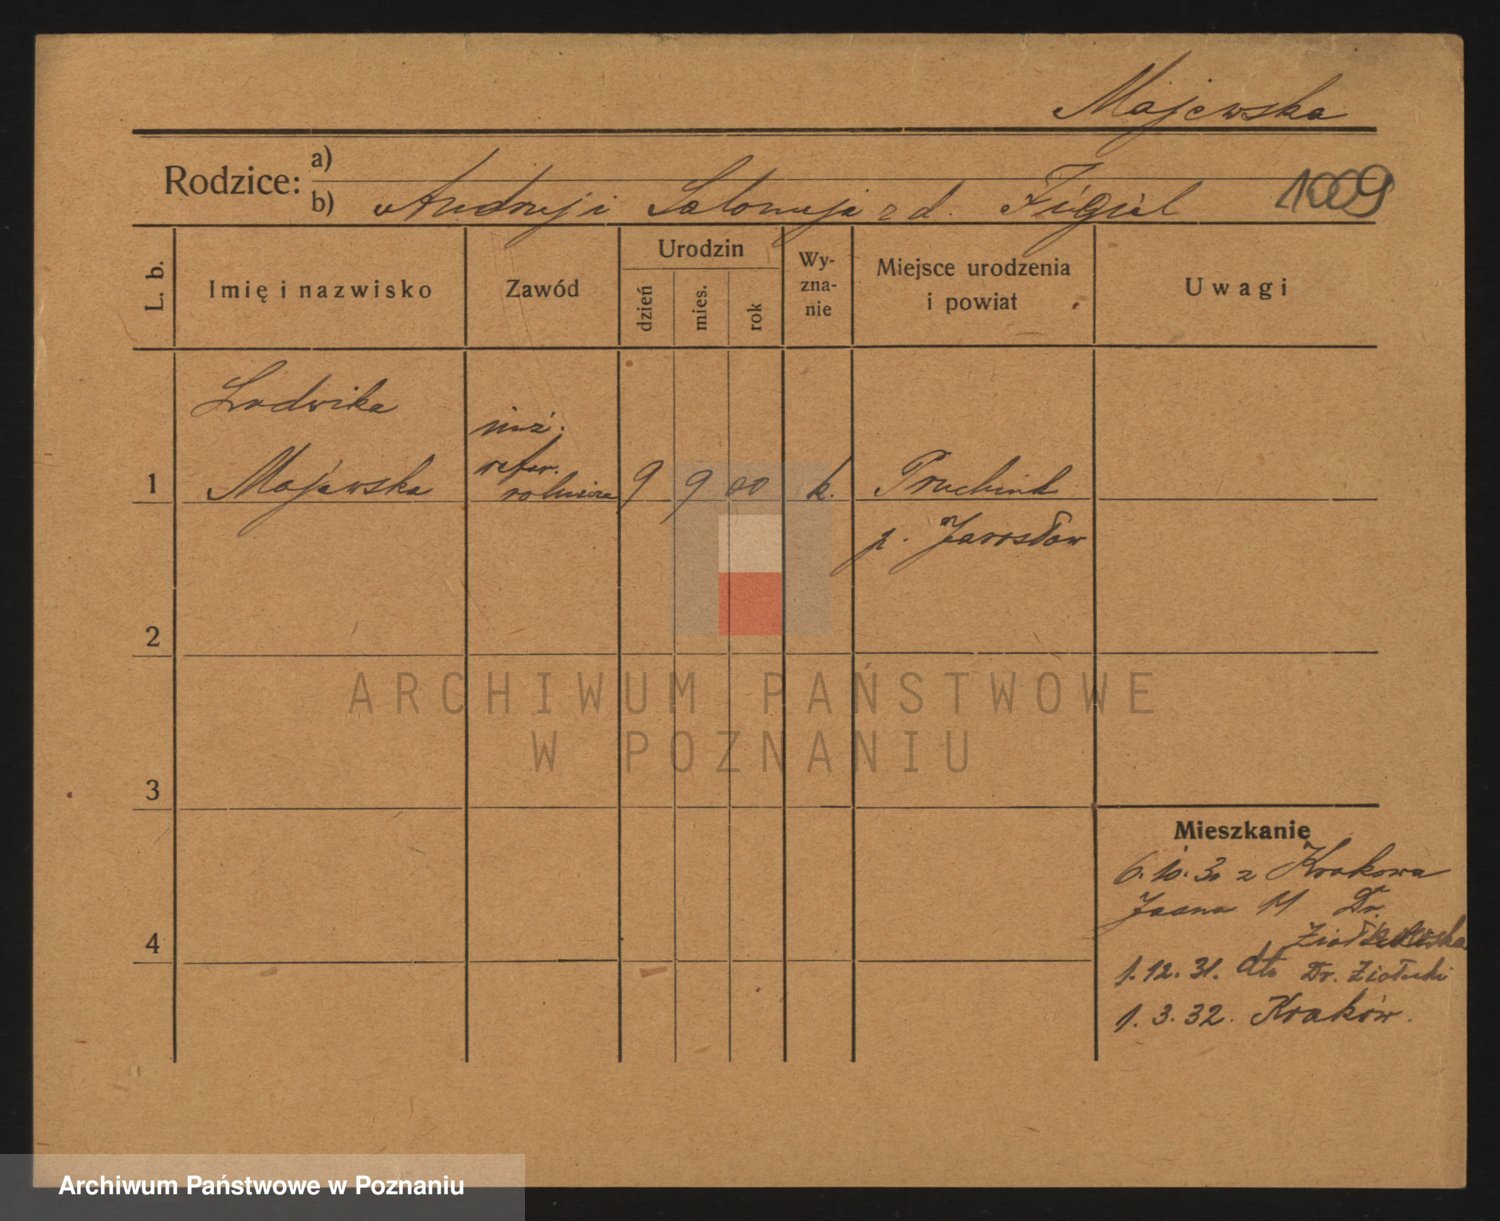 Majewska
Rodzice: a)
b) Andrzej i Salomeja z d. Figiel 1009
L. b.
Imię i nazwisko
Zawód
Urodzin
dzień
mies.
rok
Wy-
zna-
nie
Miejsce urodzenia
i powiat
Uwagi
Ludwika
inż.
refer.
1 Majewska rolnicza 9 9 00 k. Pruchnik
p. Jarosław
2
3
4
ARCHIWUM PAŃSTWOWE
W POZNANIU
Mieszkanie
6.10.30 z Krakowa
Jasna 11 Dr.
1.12.31. dto Dr. Ziołecki
1.3.32. Kraków.
Archiwum Państwowe w Poznaniu